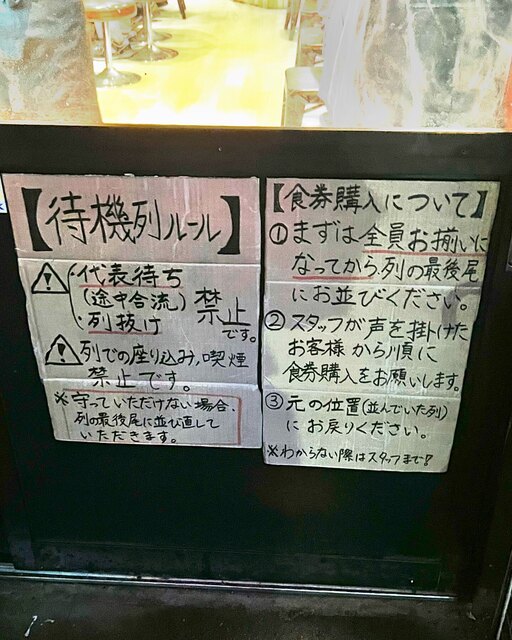 【待機列ルール】
⚠・代表待ち
(途中合流)
・列抜け
禁止です。
⚠列での座り込み,喫煙
禁止です。
※守っていただけない場合、
列の最後尾に並び直して
いただきます。
【食券購入について】
①まずは全員お揃いに
なってから列の最後尾
にお並びください。
②スタッフが声を掛けた
お客様から順に
食券購入をお願いします。
③元の位置(並んでいた列)
にお戻りください。
※わからない際はスタッフまで!